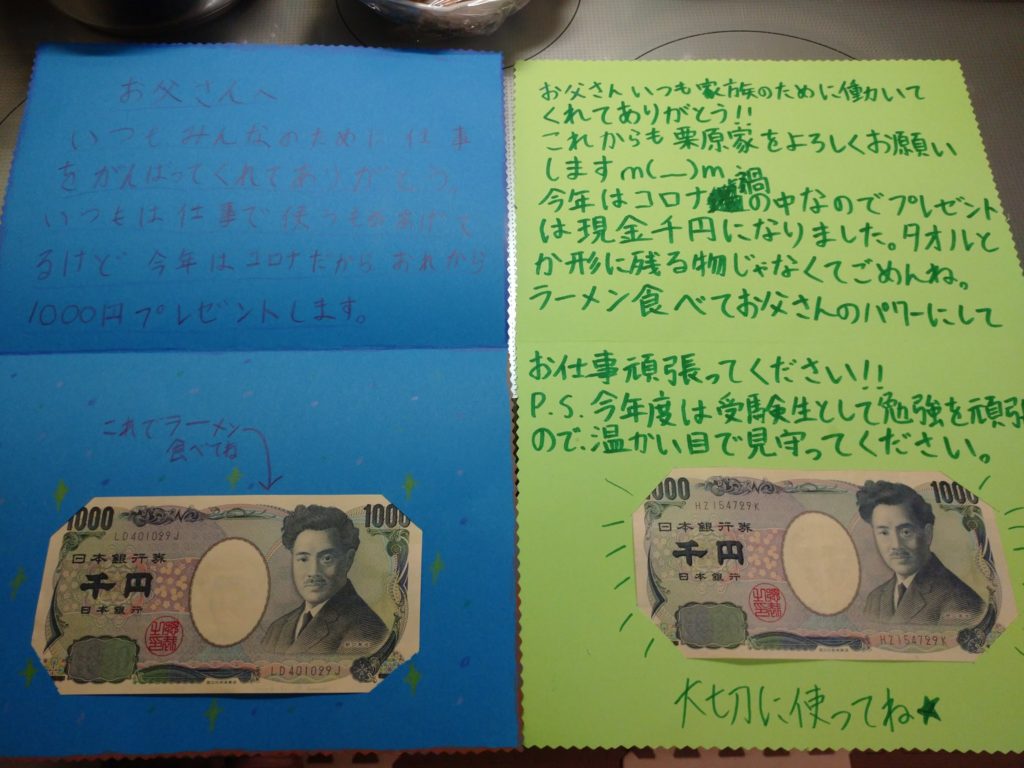 お父さんへ
いつもみんなのために仕事
をがんばってくれてありがとう。
いつもは仕事で使うものあげて
るけど 今年はコロナだから おれから
1000円プレゼントします。
これでラーメン
食べてね
1000
1000
LD401029J
日本銀行券
千円
日本銀行
LD401029J
お父さんいつも家族のために働いて
くれてありがとう!!
これからも栗原家をよろしくお願い
しますm(__)m
禍
今年はコロナの中なのでプレゼント
は現金千円になりました。タオルと
か形に残る物じゃなくてごめんね。
ラーメン食べてお父さんのパワーにして
お仕事頑張ってください!!
P.S.今年度は受験生として勉強を頑張
ので、温かい目で見守ってください。
1000
1000
HZ154729K
日本銀行券
千円
日本銀行
HZ154729K
大切に使ってね★